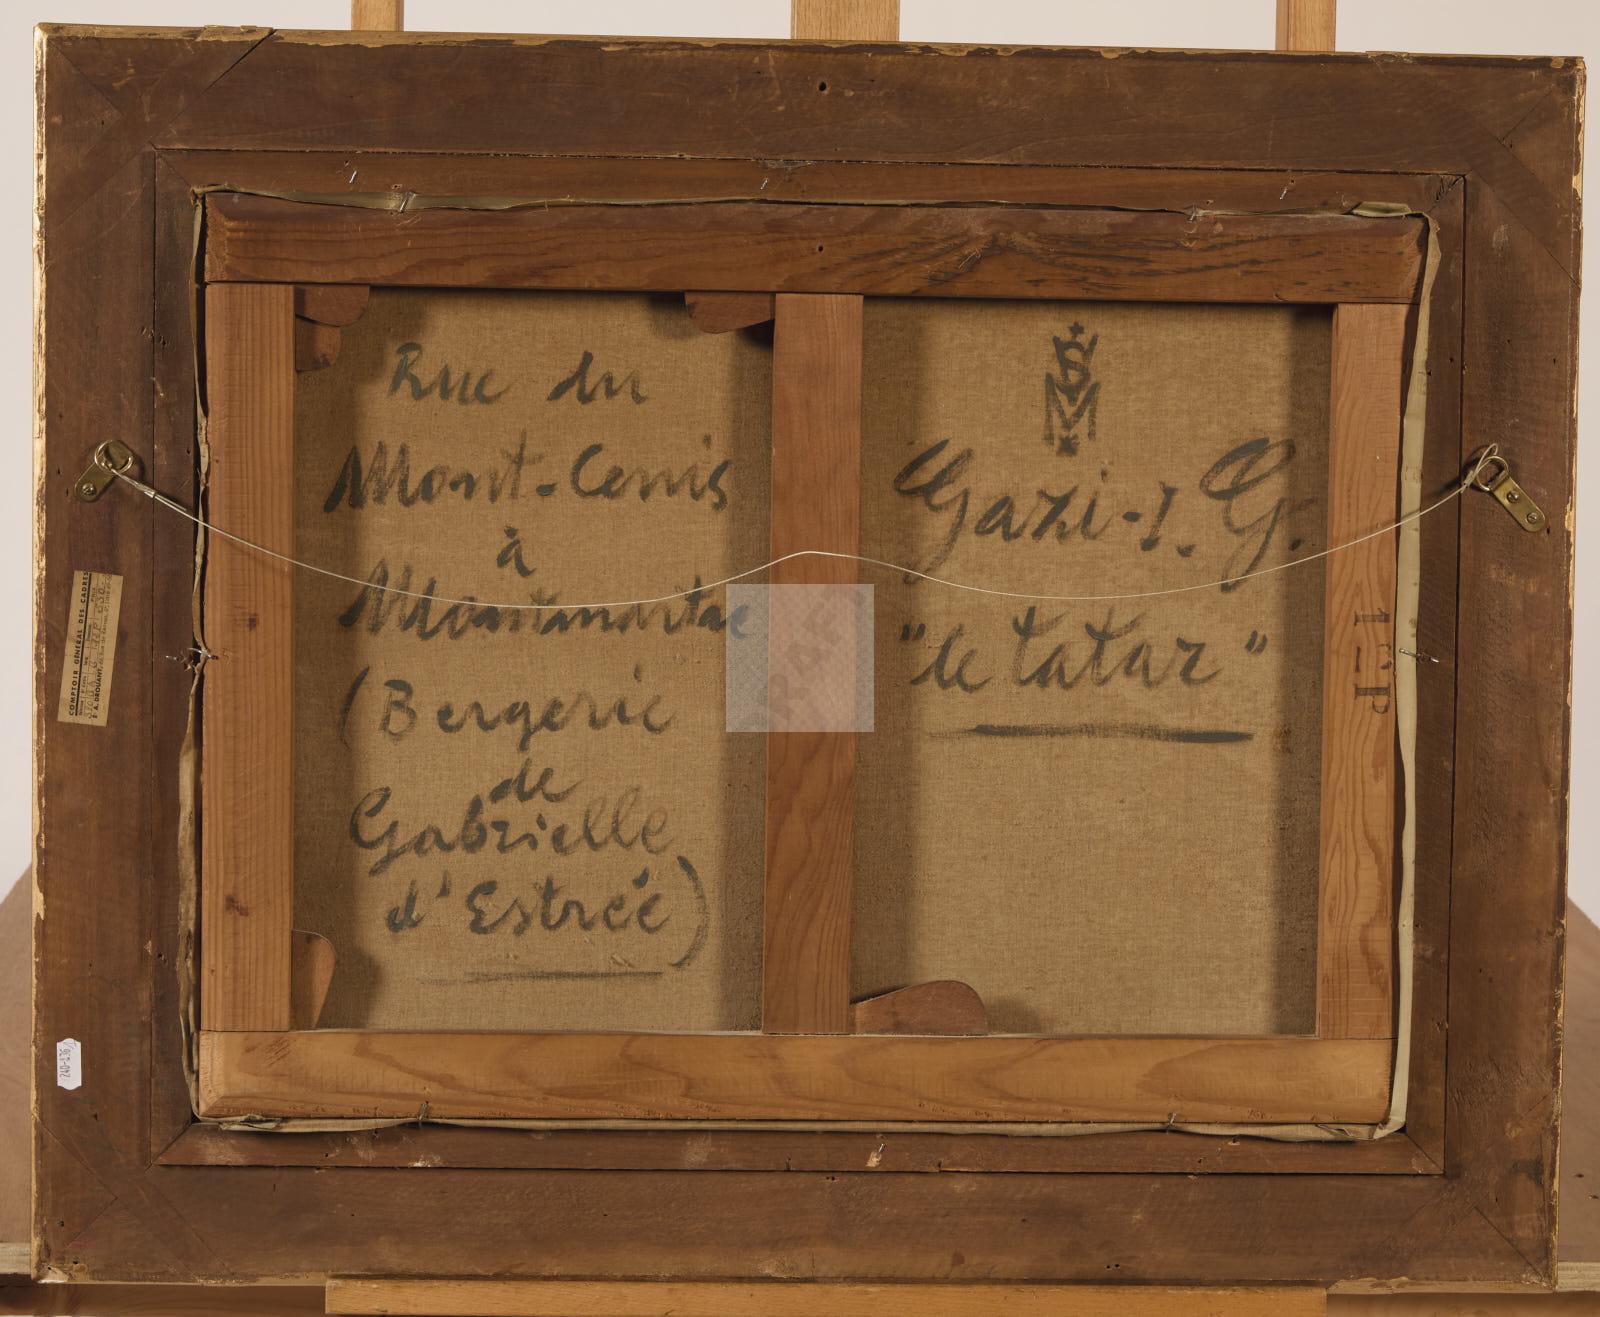 Rue du
Mont-Cenis
à
Montmartre
(Bergerie
de
Gabrielle
d'Estréé)
Gazi-I. G.
"le tatar"
12P
COMPTOIR GÉNÉRAL DES CADRES
240-136